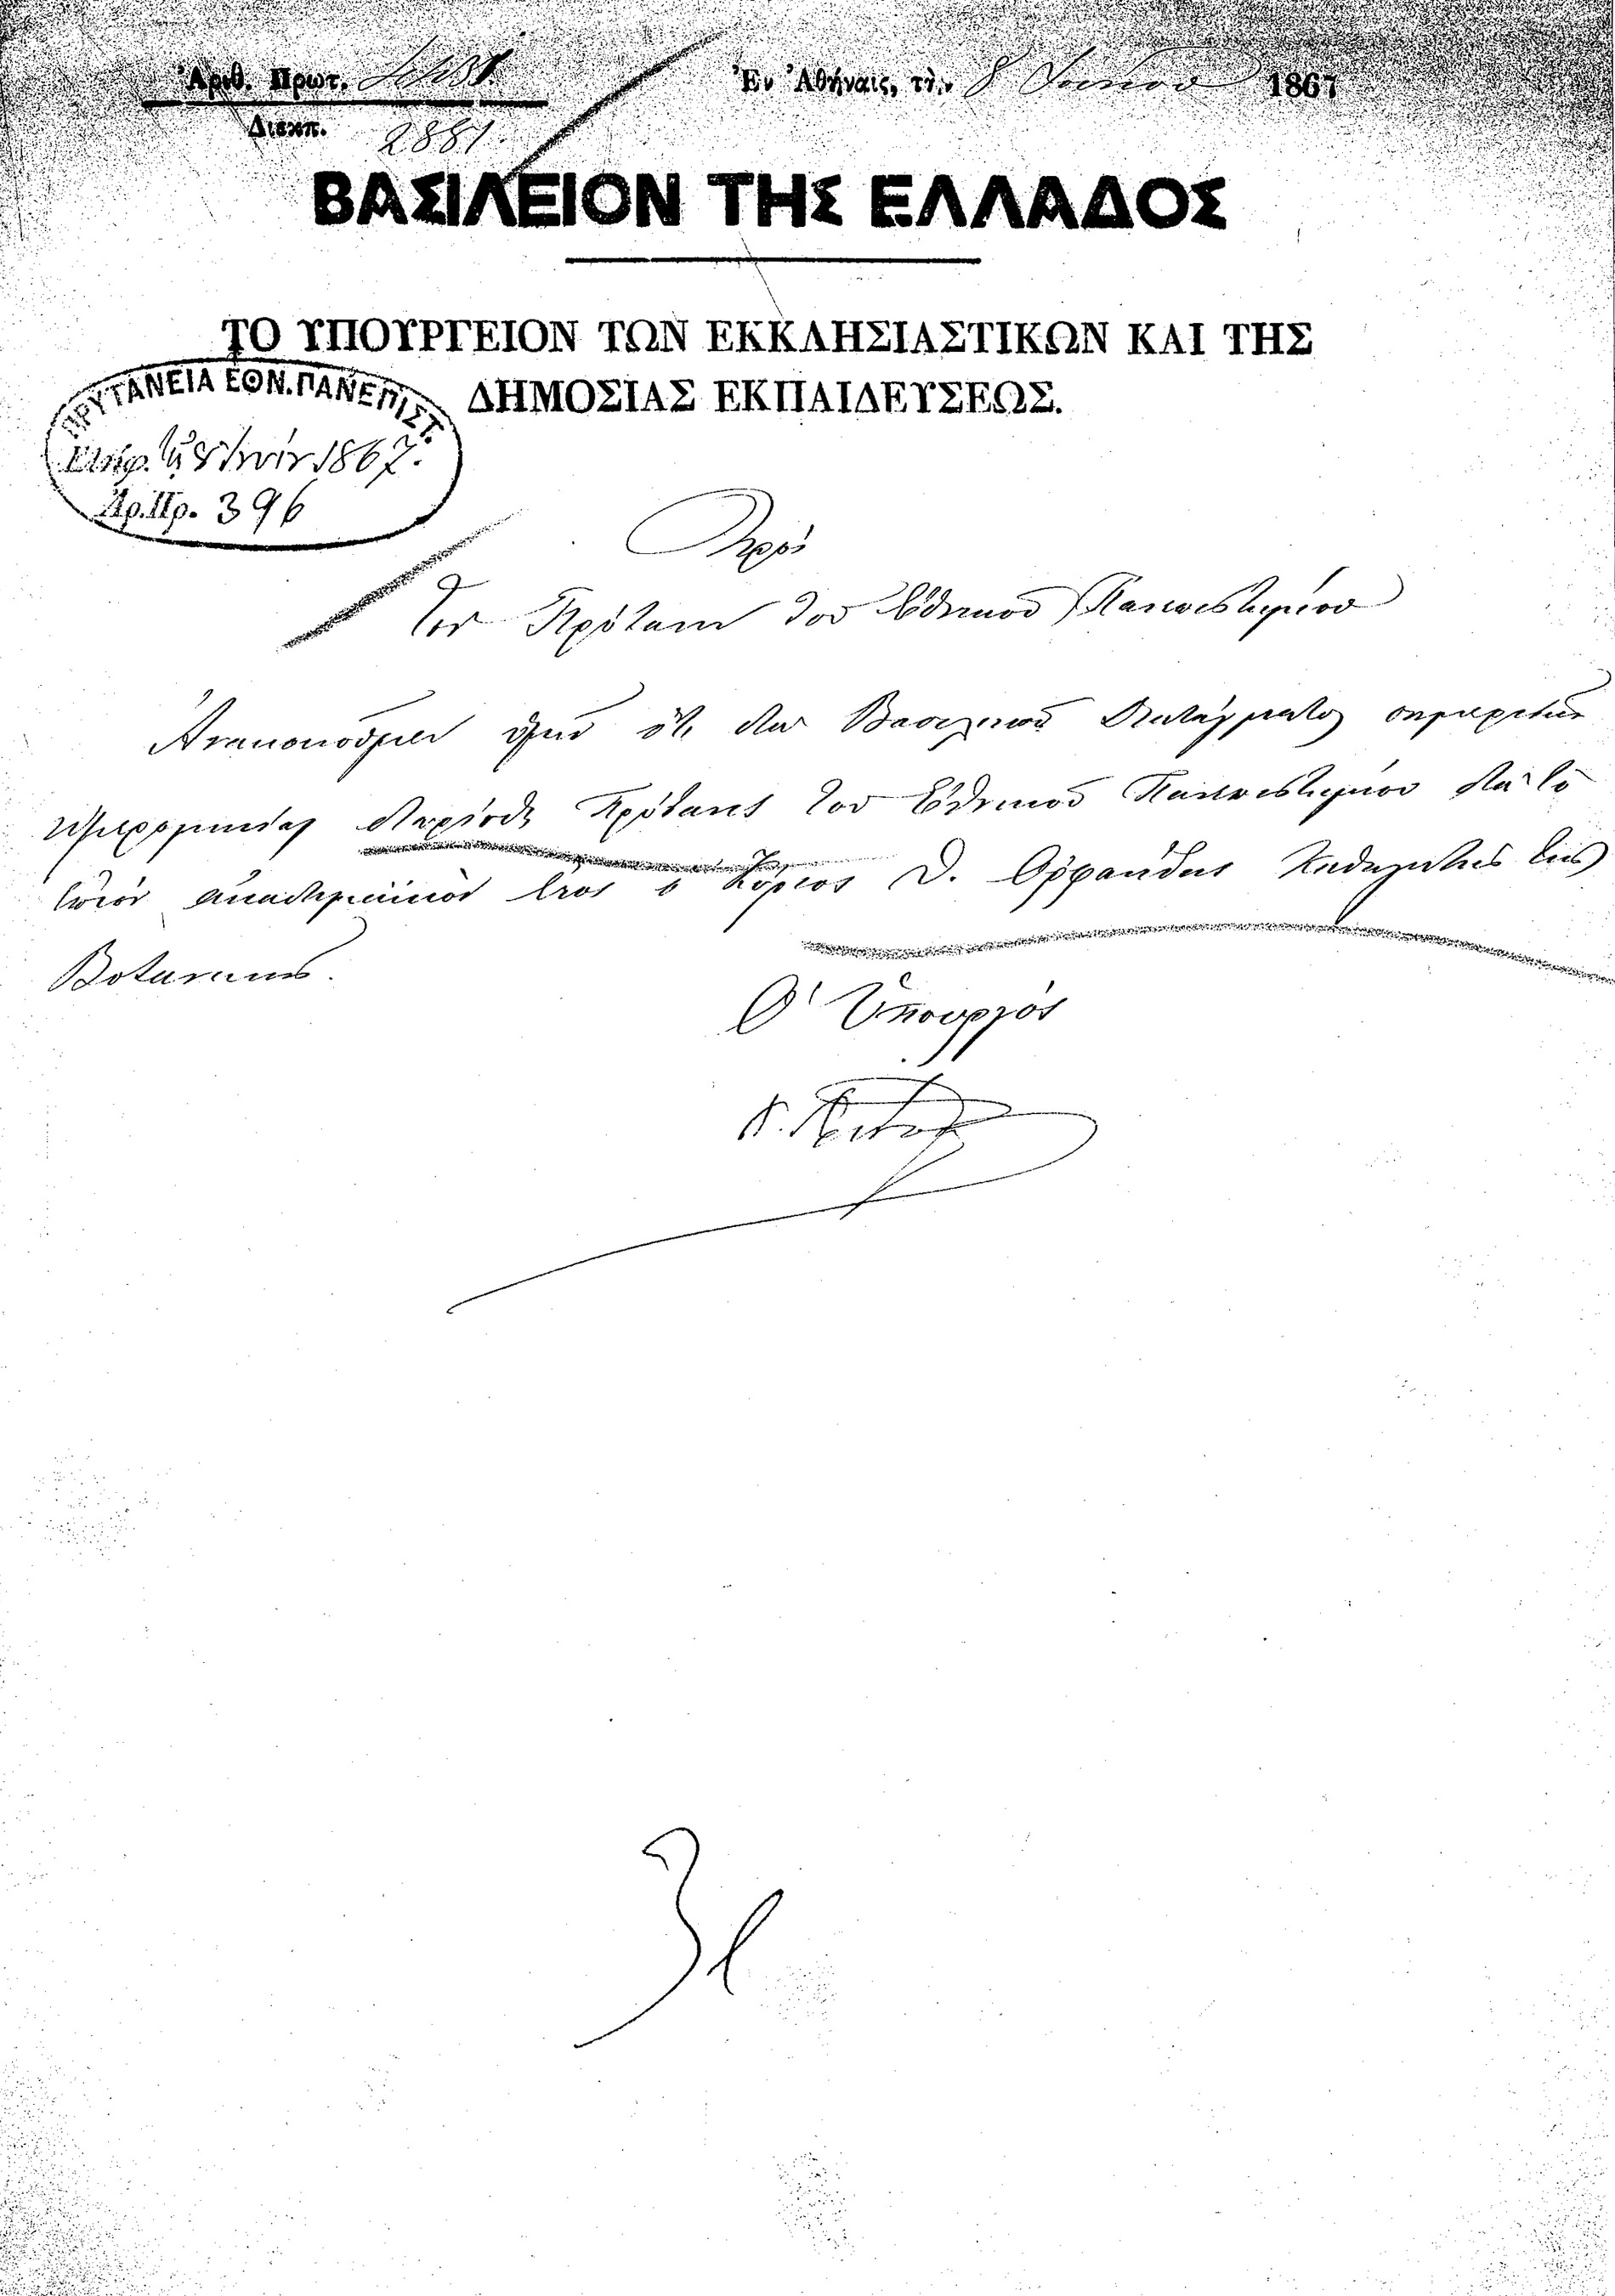 Ἀριθ. Πρωτ.
Ἐν Ἀθήναις, τῇ 8 Ἰουνίου 1867
Διεκπ. 2881
ΒΑΣΙΛΕΙΟΝ ΤΗΣ ΕΛΛΑΔΟΣ
ΤΟ ΥΠΟΥΡΓΕΙΟΝ ΤΩΝ ΕΚΚΛΗΣΙΑΣΤΙΚΩΝ ΚΑΙ ΤΗΣ
ΔΗΜΟΣΙΑΣ ΕΚΠΑΙΔΕΥΣΕΩΣ.
ΠΡΥΤΑΝΕΙΑ ΕΘΝ. ΠΑΝΕΠΙΣΤ.
1867.
Ἀρ. Πρ. 396
Πρὸς
Τὸν Πρύτανιν τοῦ Ἐθνικοῦ Πανεπιστημίου
Ἀνακοινοῦμεν ὑμῖν ὅτι διὰ Βασιλικοῦ Διατάγματος
διωρίσθη Πρύτανις τοῦ Ἐθνικοῦ Πανεπιστημίου διὰ τὸ
ἀκαδημαϊκὸν ἔτος ὁ Κύριος Θ. Ὀρφανίδης Καθηγητὴς τῆς
Βοτανικῆς.
Ὁ Ὑπουργὸς